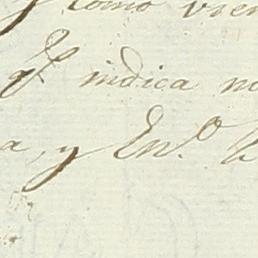 y como vien
qe indica n
a, y En.o